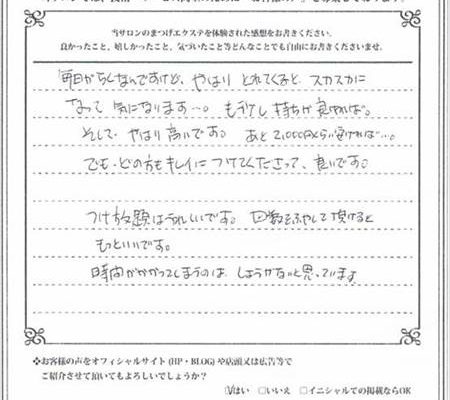 当サロンのまつげエクステを体験された感想をお書きください。
良かったこと、嬉しかったこと、気づいたこと等どんなことでも自由にお書きくださいませ。
毎日がらくなんですけど、やはり とれてくると スカスカに
なって 気になります…。もう少し 持ちが 良ければ。
そして やはり 高いです。 あと2,000円くらい安ければ…。
でも、どの方も キレイに つけてくださって、良いです。
つけ放題はうれしいです。 回数をふやして 頂けると
もっといいです。
時間がかかってしまうのは しょうがないと思っています
❖お客様の声をオフィシャルサイト(HP・BLOG)や店頭又は広告等で
ご紹介させて頂いてもよろしいでしょうか?
☑はい □いいえ □イニシャルでの掲載ならOK